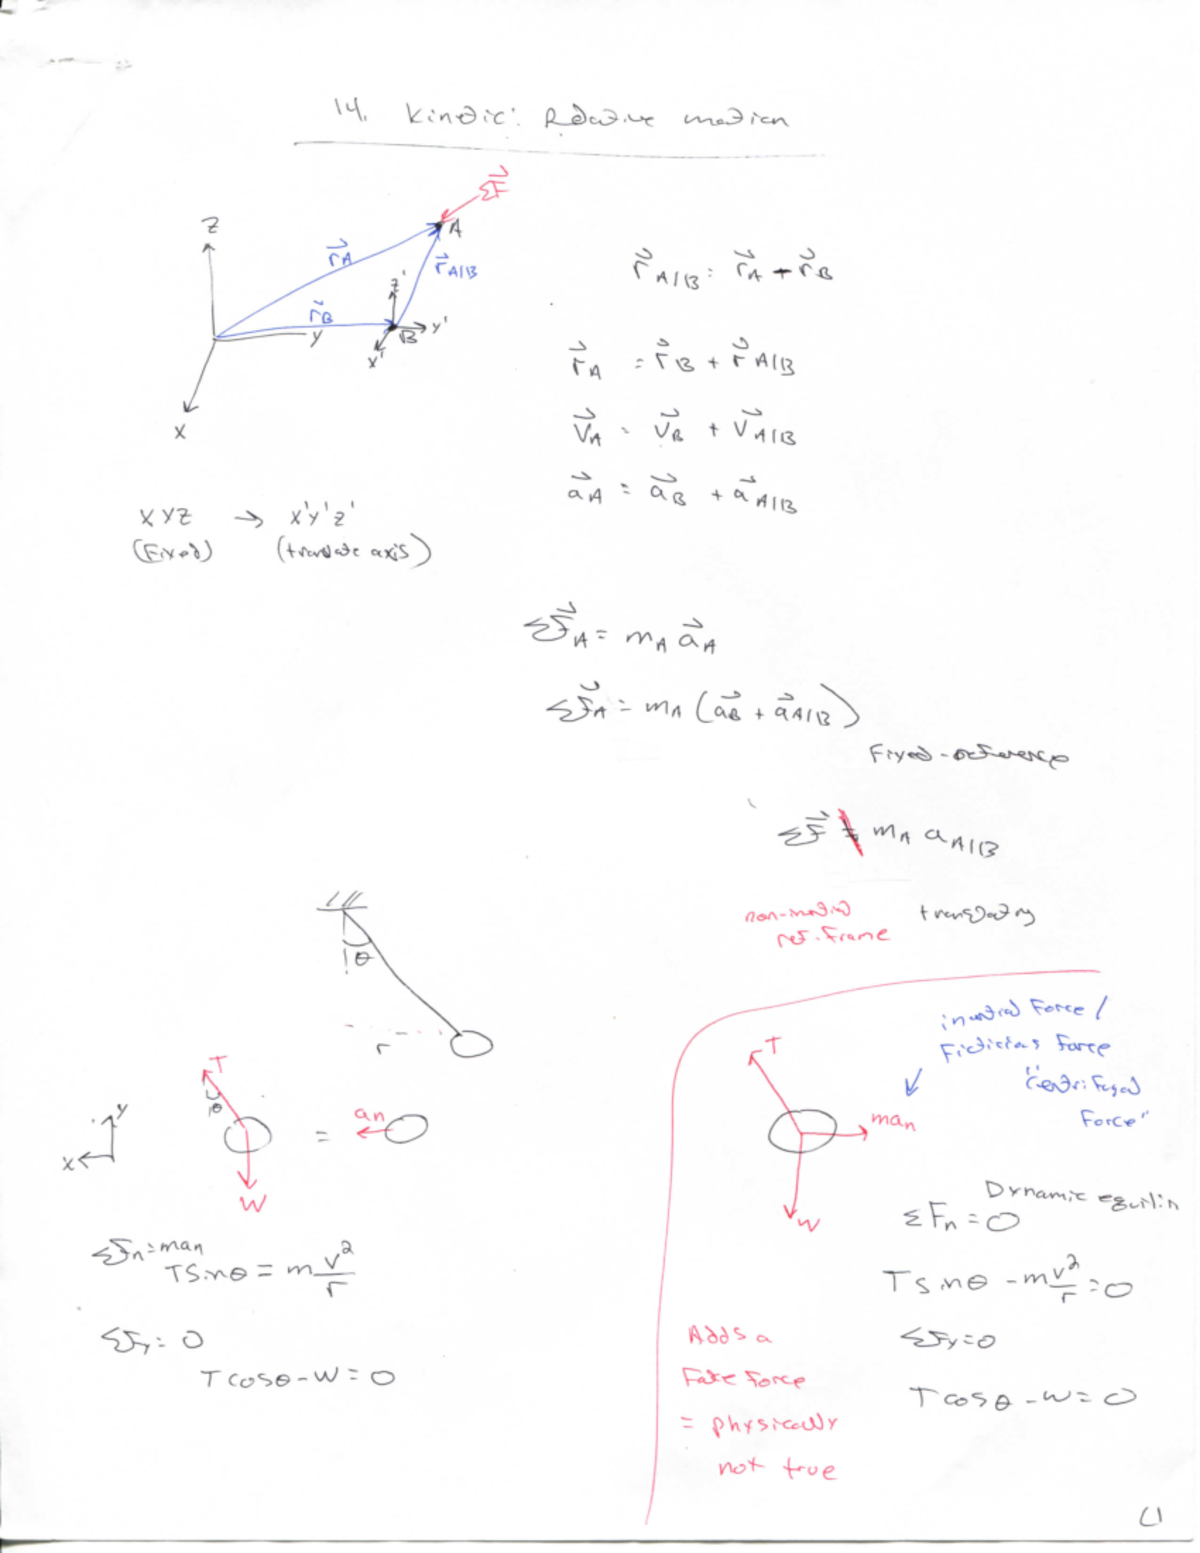 14. Kinetic: Relative motion
ΣF⃗
Z
A
r⃗A
r⃗A/B
z'
r⃗B
y
B
y'
x'
X
r⃗A/B = r⃗A - r⃗B
r⃗A = r⃗B + r⃗A/B
v⃗A = v⃗B + v⃗A/B
a⃗A = a⃗B + a⃗A/B
XYZ → x'y'z'
(Fixed) (translate axis)
ΣF⃗A = mA a⃗A
ΣF⃗A = mA (a⃗B + a⃗A/B)
Fixed-reference
ΣF⃗ ≠ mA aA/B
non-inertial translating
ref. Frame
θ
r
T
θ
y
x
=
an
W
ΣFn = man
T sin θ = m v²/r
ΣFy = 0
T cos θ - W = 0
inertial Force /
Ficticious Force
"Centrifugal
Force"
T
man
W
Dynamic equilib
ΣFn = 0
T sin θ - m v²/r = 0
ΣFy = 0
T cos θ - W = 0
Adds a
Fake Force
= physically
not true